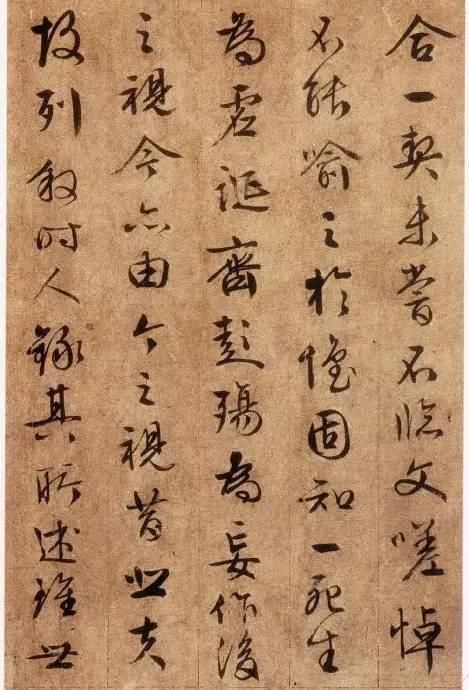 合一契未嘗不臨文嗟悼
不能喻之於懷固知一死生
為虛誕齊彭殤為妄作後
之視今亦由今之視昔悲夫
故列叙時人錄其所述雖世